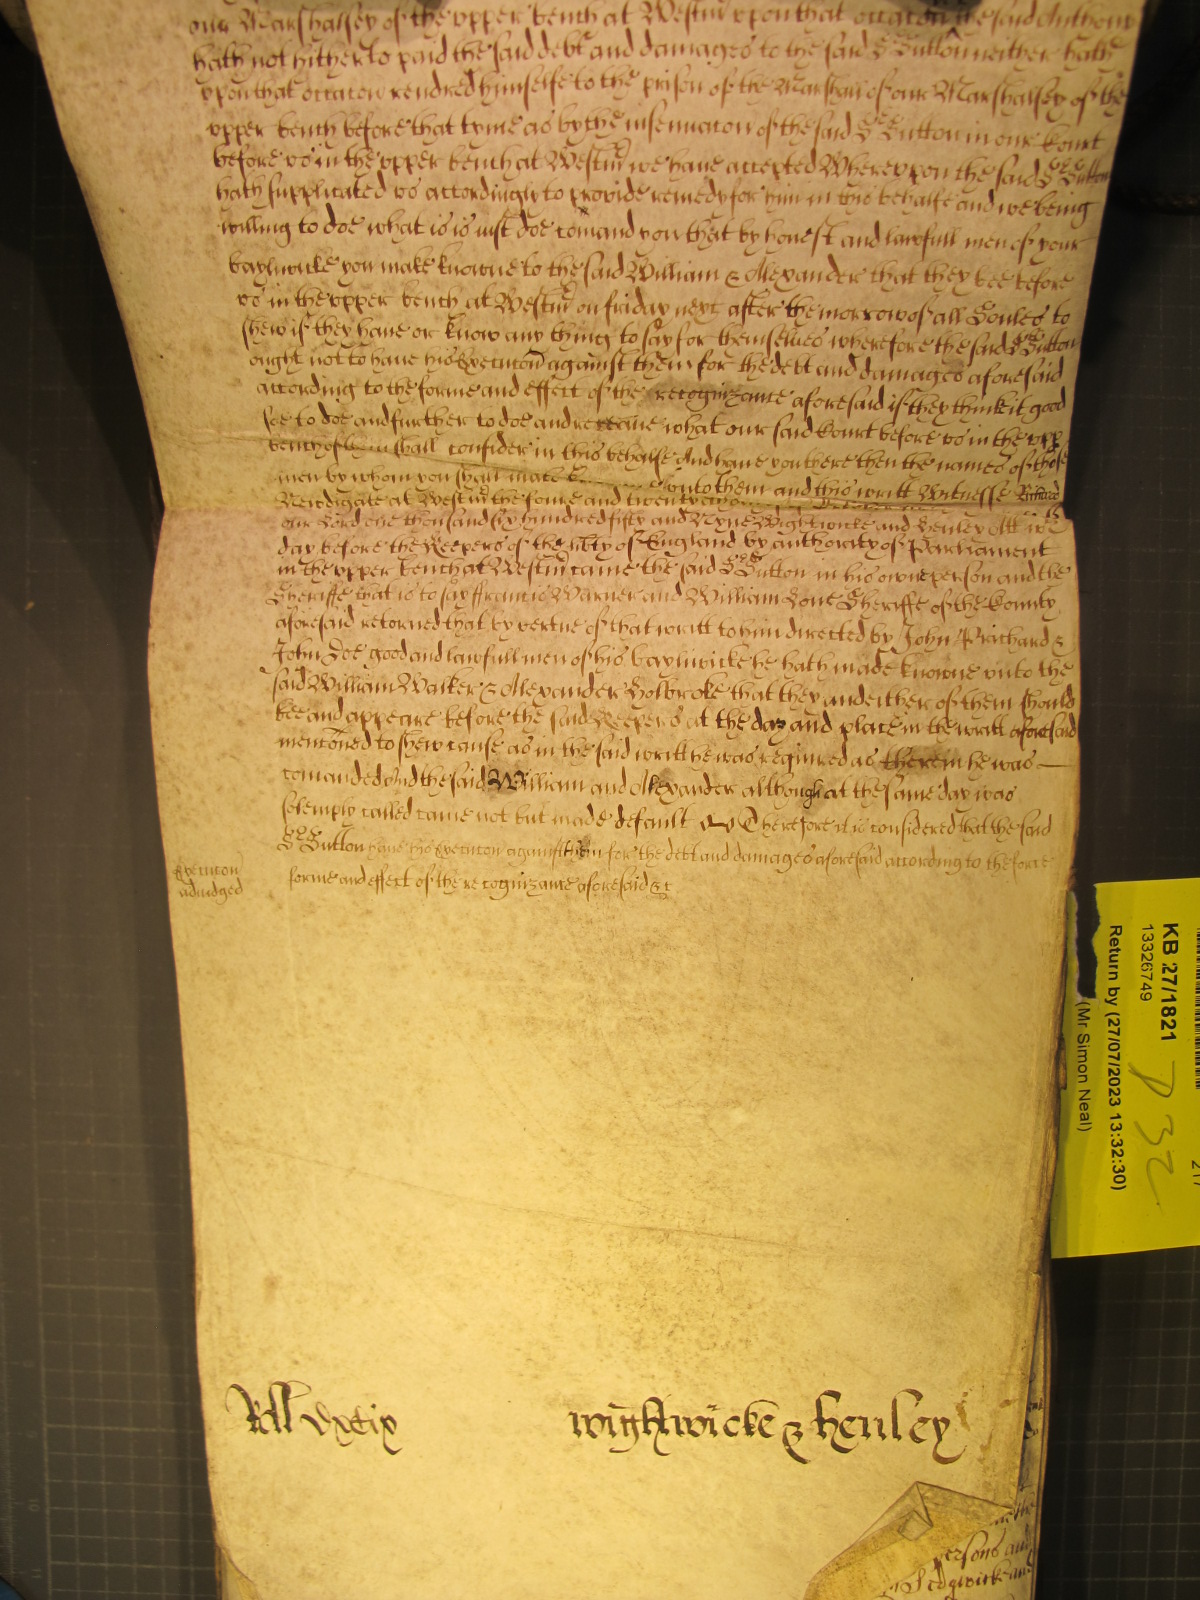 our Marshalsey of the upper bench at Westm upon that occacon the said Anthony
hath not hitherto paid the said debt and damages to the said Sutton neither hath
upon that occacon rendred himselfe to the prison of the Marshall of our Marshalsey of the
upper bench before that tyme as by the insinuacon of the said Sutton in our Court
before us in the upper bench at Westm we have accepted Whereupon the said Sutton
hath supplicated us accordingly to provide remedy for him in this behalfe and we being
willing to doe what is is iust doe comand you that by honest and lawfull men of your
baylywicke you make knowne to the said William & Alexander that they bee before
us in the upper bench at Westm on friday next after the morrow of all Soules to
shew if they have or know any thing to say for themselves wherefore the said Sutton
ought not to have his Execucon against them for the debt and damages aforesaid
according to the forme and effect of the recognizance aforesaid if they thinke it good
soe to doe and further to doe and receive what our said Court before us in the upp
bench of them shall consider in this behalfe And have you there then the names of those
men by whom you shall make unto them and this writt Witnesse Richard
Newdigate at Westm the foure and twentyeth
our Lord one thousand six hundred fifty and Nyne Wightwicke and Henley Att wch
day before the Keepers of the libty of England by authority of Parliament
in the upper bench at Westm came the said Sutton in his owne person and the
Sheriffe that is to say ffrancis Warner and William Love Sheriffe of the County
aforesaid retorned that by vertue of that writt to him directed by John Prichard &
John Doe good and lawfull men of his baylywicke he hath made knowne unto the
said William Walker & Alexander Holbroke that they and either of them should
bee and appeare before the said Keepers at the day and place in the writt aforesaid
menconed to shew cause as in the said writt he was required as therein he was
comanded And the said William and Alexander although at the same day was
solemply called came not but made default Therefore it is considered that the said
Sutton have his Execucon against them for the debt and damages aforesaid according to the force
forme and effect of the recognizance aforesaid &c
Execucon
adiudged
Roll
wightwicke & henley
persons and
Sedgwicke and
KB 27/1821
13326749
Return by (27/07/2023 13:32:30)
(Mr Simon Neal)
217
D 32